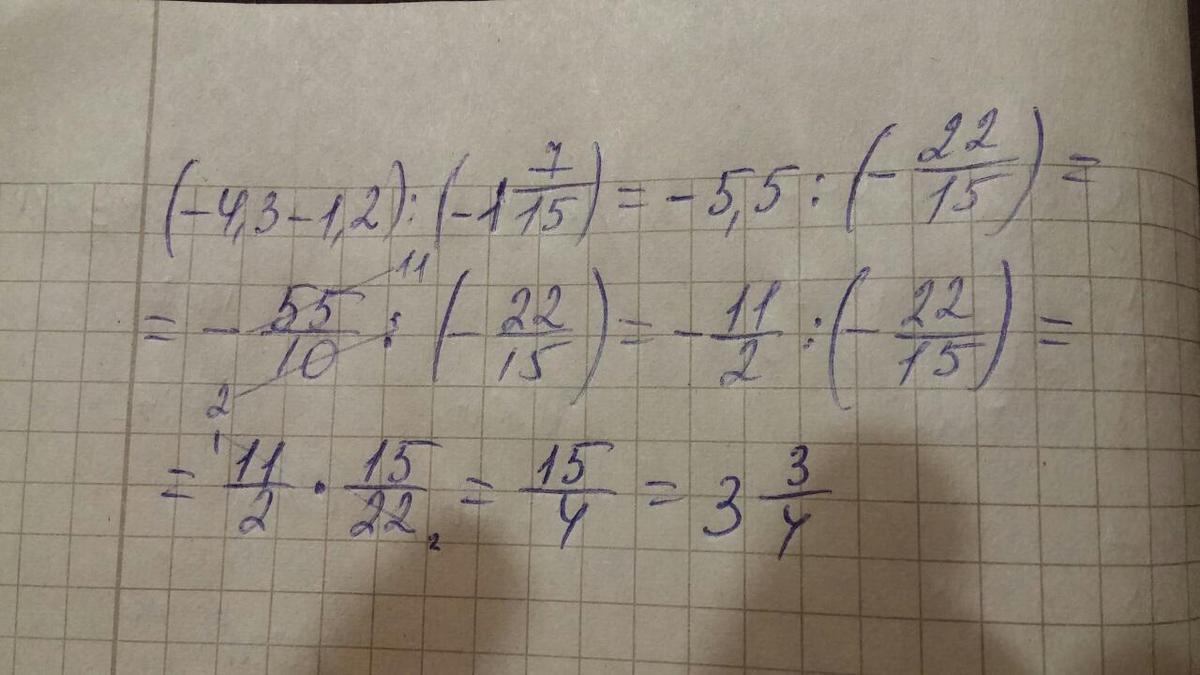 (-4,3-1,2):(-1 7/15)=-5,5:(-22/15)=
=-55/10 11 2:(-22/15)=-11/2:(-22/15)=
=1 11/2·15/22 2=15/4=3 3/4